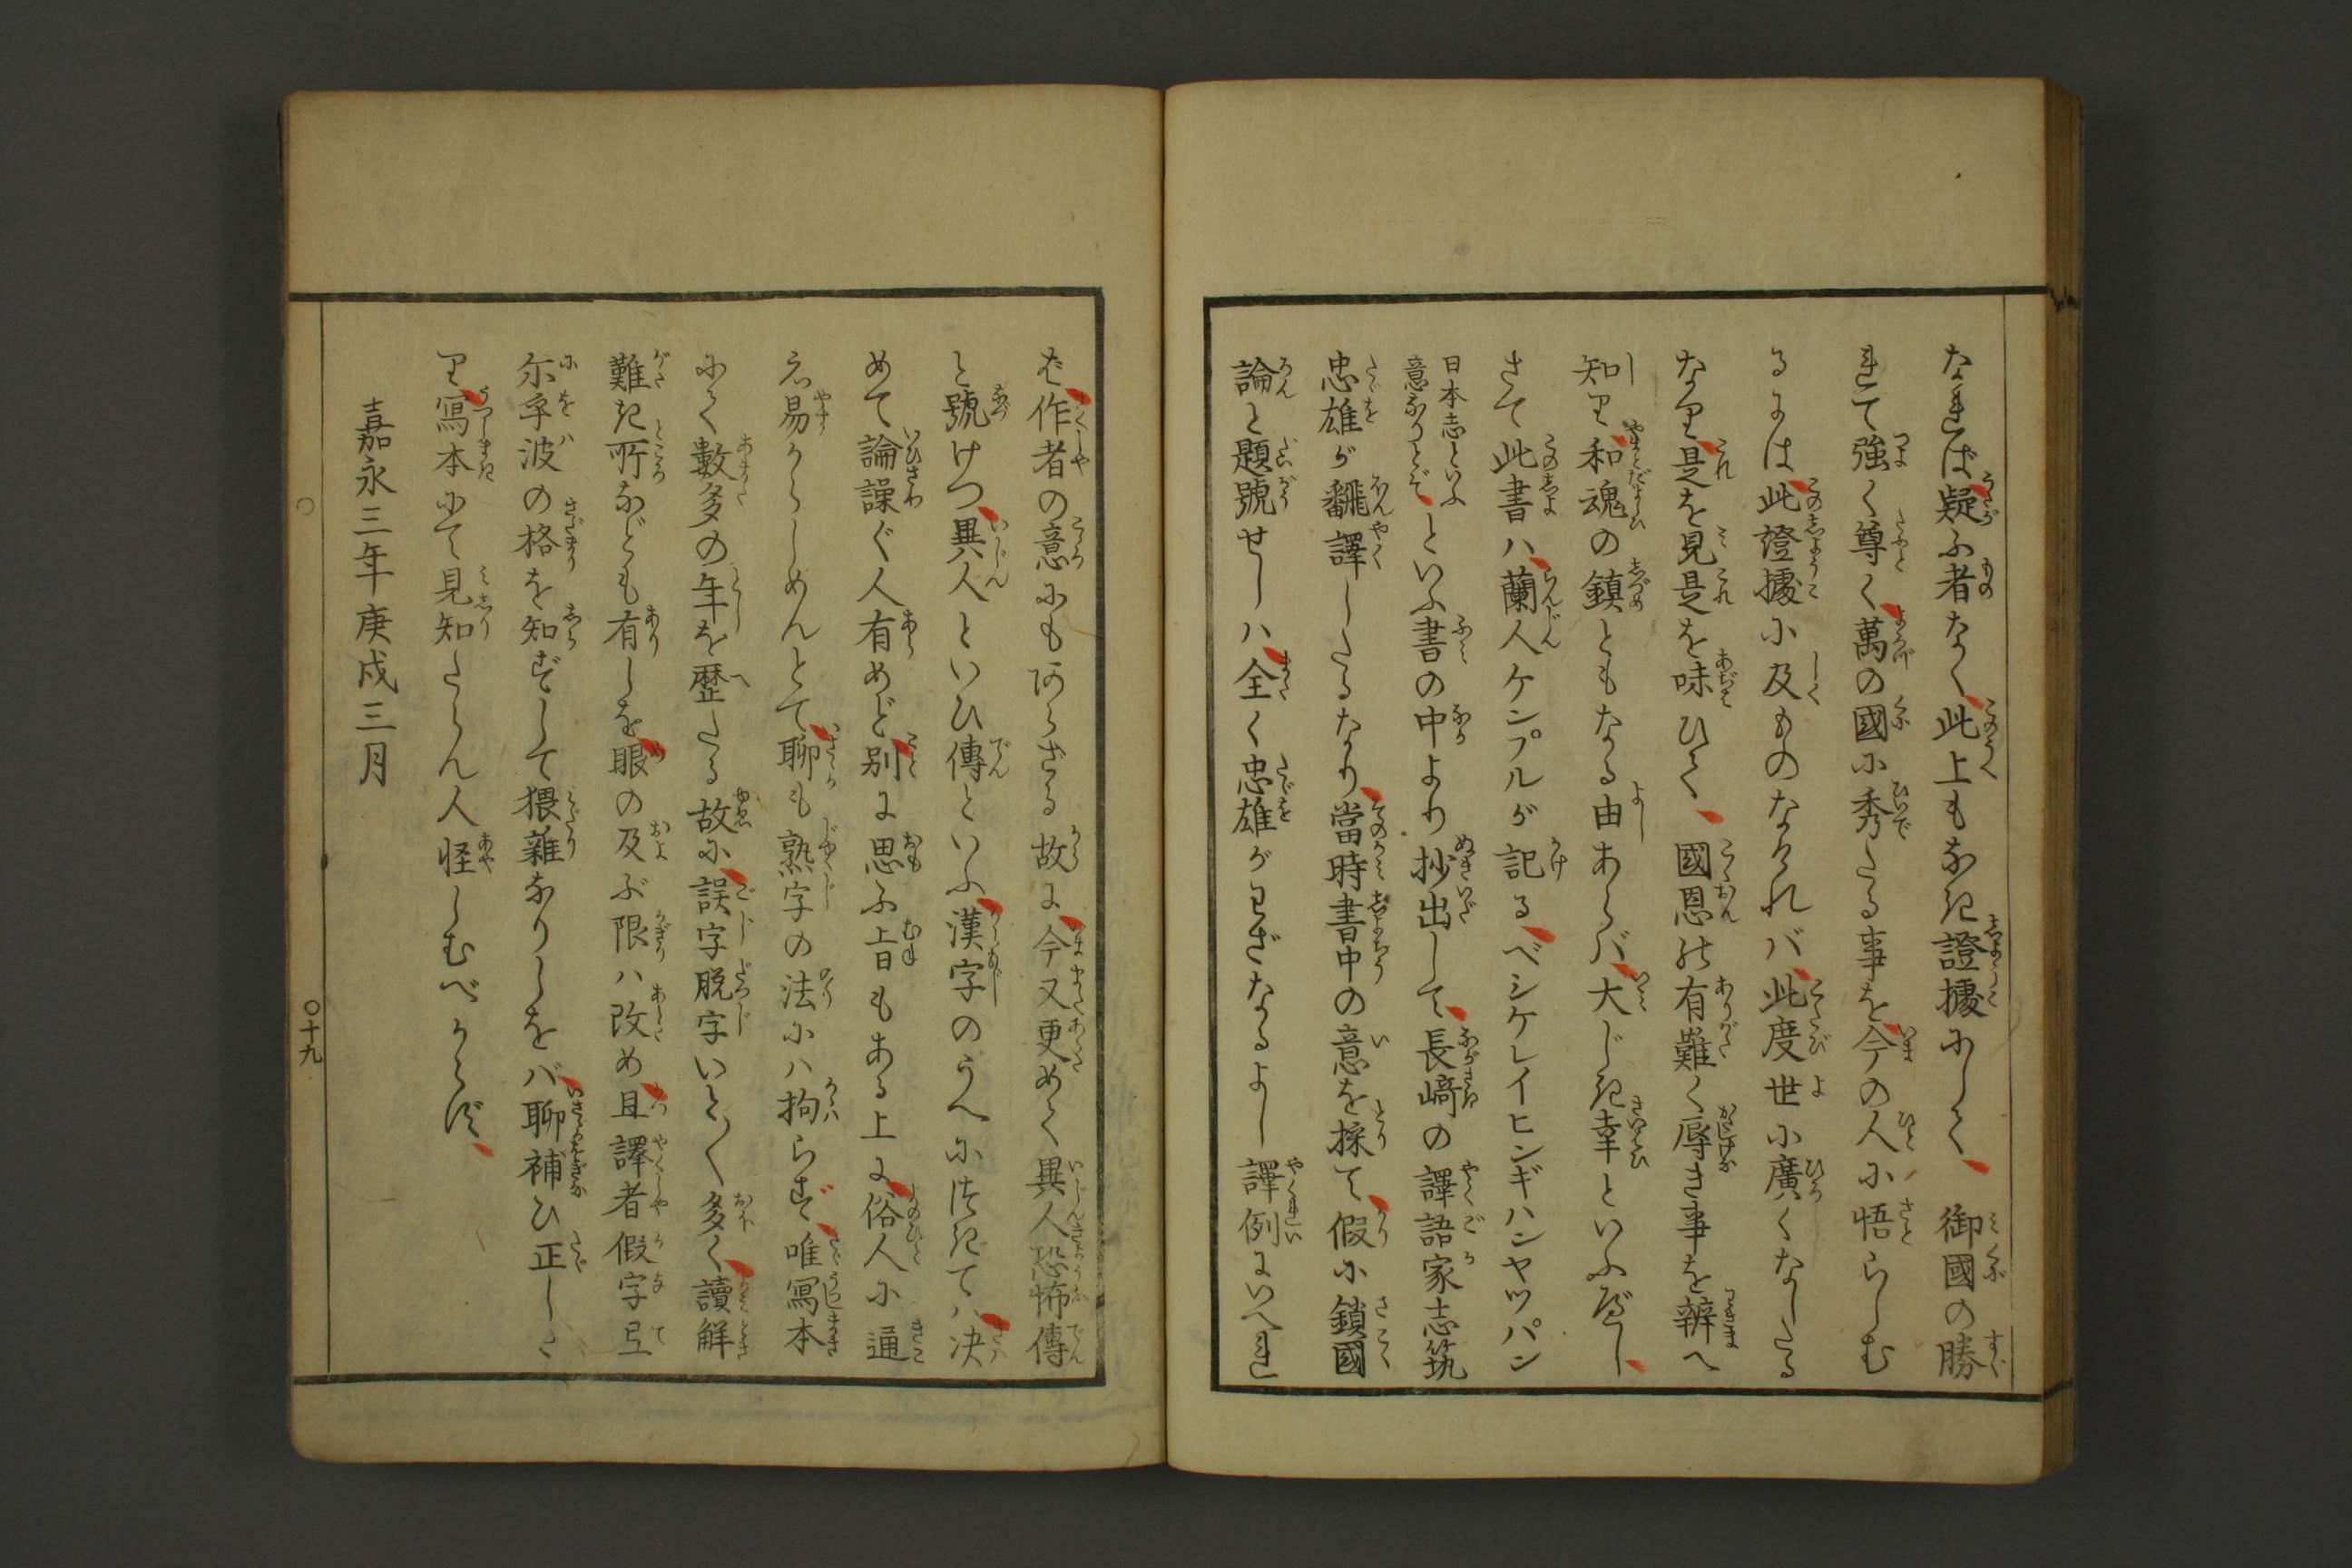 なれば疑ふ者なく此上もなき證據にして御國の勝
れて強く尊く萬の國に秀たる事を今の人に悟らしむ
るには此證據に及ものなけれバ此度世に廣くなしたる
なり是を見是を味ひて國恩の有難く辱き事を辨へ
知り和魂の鎮ともなる由あらバ大じき幸といふべし
さて此書ハ蘭人ケンプルが記るベシケレイヒンギハンヤツパン
日本志といふ
意なりとぞ
といふ書の中より抄出して長﨑の譯語家志筑
忠雄が飜譯したるなり當時書中の意を採て假に鎖國
論と題號せしハ全く忠雄がわざなるよし譯例にいへれ
ど作者の意にもあらざる故に今又更めて異人恐怖傳
と號けつ異人といひ傳といふ漢字のうへにつきてハ決
めて論譟ぐ人有めど別に思ふ旨もある上に俗人に通
え易からしめんとて聊も熟字の法にハ拘らず唯寫本
にて數多の年を歴たる故に誤字脱字いと〱多く讀解
難き所なども有しを眼の及ぶ限ハ改め且譯者假字弖
尓乎波の格を知ずして猥雜なりしをバ聊補ひ正した
り寫本にて見知たらん人怪しむべからず
嘉永三年庚戌三月
〇十九